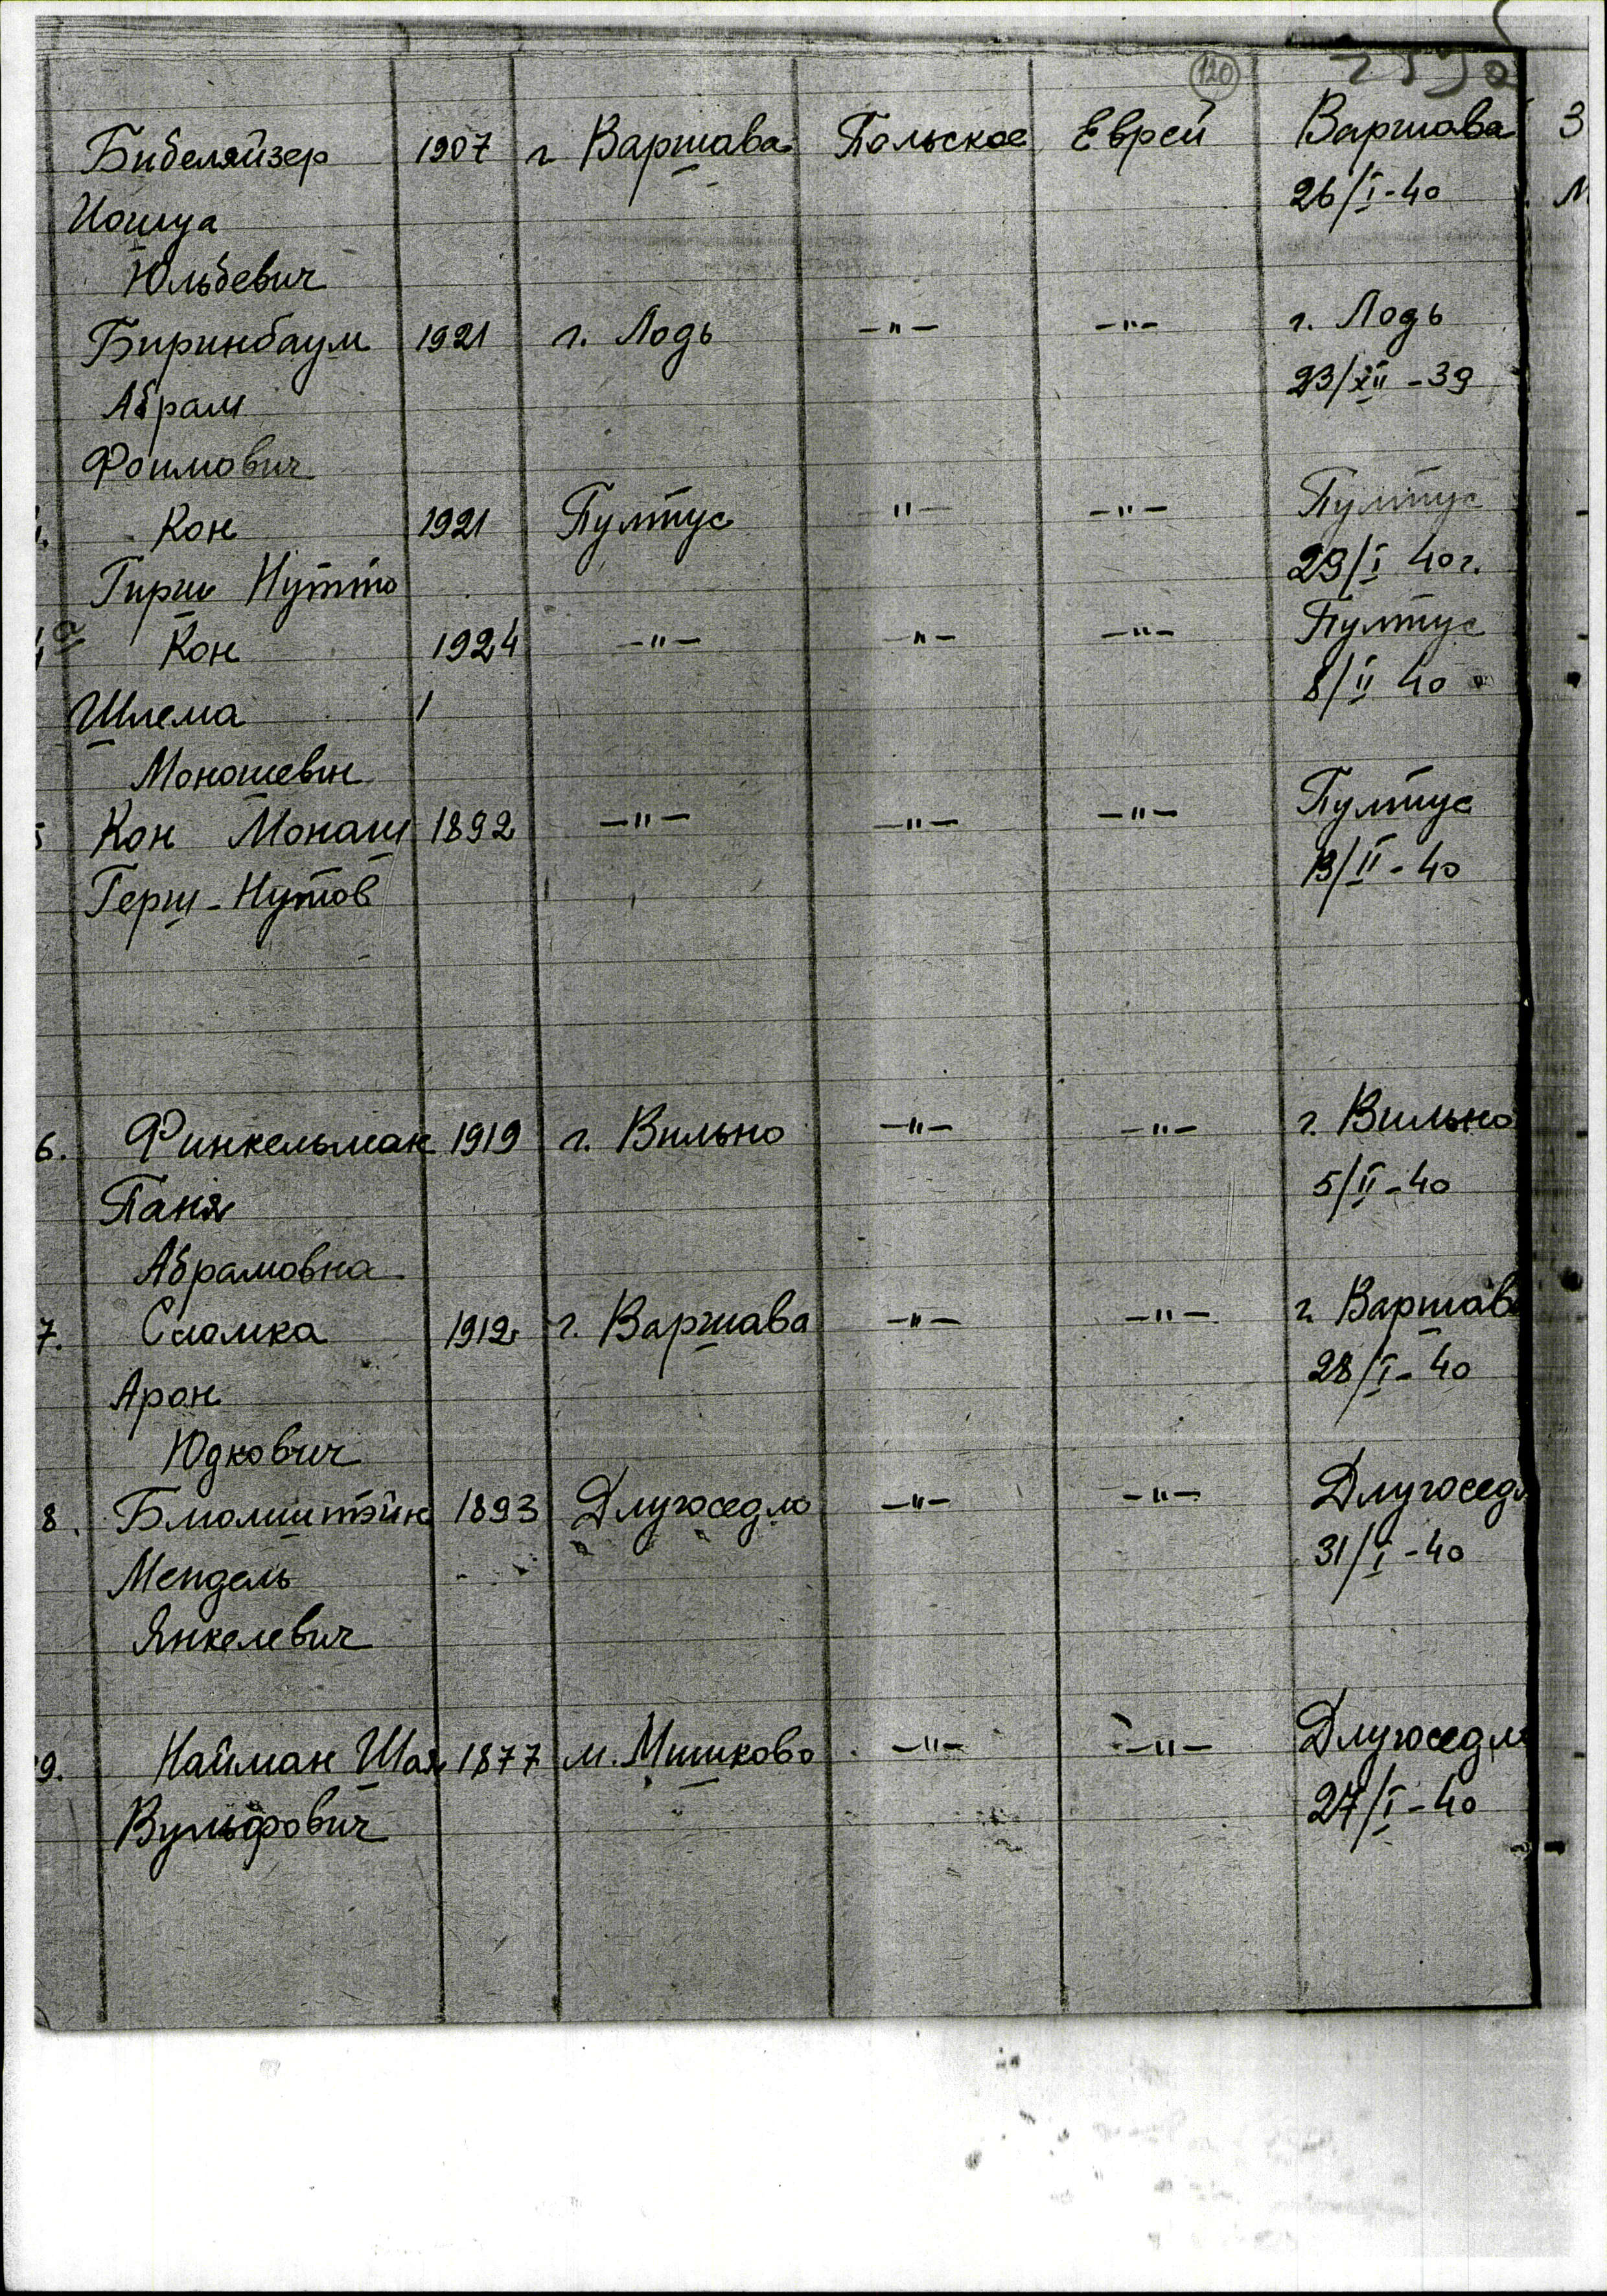 120
Бибеляйзер 1907 г Варшава Польское Еврей Варшава З
Иошуа 26/I-40 М
Юльбевич
Биринбаум 1921 г. Лодь -"- -"- г. Лодь
Абрам 23/XII-39
Фоимович
Кон 1921 Пултус -"- -"- Пултус
Гирш Нутто 29/I 40г.
Кон 1924 -"- -"- -"- Пултус
Шлема 8/II 40
Моношевич
Кон Монаш 1892 -"- -"- -"- Пултус
Герш-Нутов 13/II-40
6. Финкельман 1919 г. Вильно -"- -"- г. Вильно
Таня 5/II-40
Абрамовна
7. Сломка 1912 г. Варшава -"- -"- г. Варшава
Арон 28/I-40
Юдкович
8. Блюмштэйн 1893 Длугоседло -"- -"- Длугоседл
Мендель 31/I-40
Янкелевич
9. Найман Шая 1877 м. Мишково -"- -"- Длугоседло
Вульфович 27/I-40